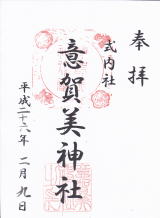 奉拝
式内社
意賀美神社
平成二十六年二月九日